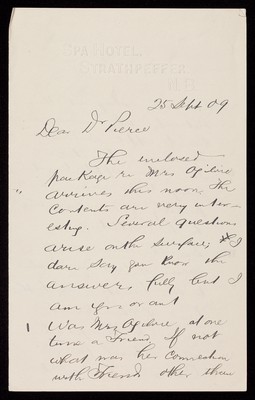 SPA HOTEL,
STRATHPEFFER
N.B.
25 Sept 09
Dear Dr Pierce
The enclosed
package re Mrs Ogilvie
arrives this noon. The
contents are very inter-
esting. Several questions
arise on the surface; I
dare say you know the
answers fully but I
am ignorant
1 Was Mrs Ogilvie at one
time a Friend, If not
what was her connection
with Friends other than